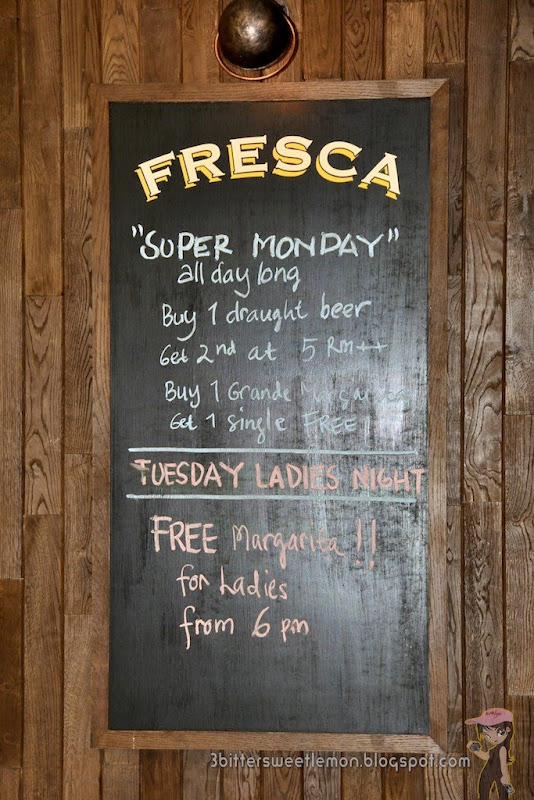 FRESCA
"SUPER MONDAY"
all day long
Buy 1 draught beer
Get 2nd at 5 RM++
Buy 1 Grande Margarita
Get 1 single FREE!
TUESDAY LADIES NIGHT
FREE Margarita!!
for Ladies
from 6 pm
3bittersweetlemon.blogspot.com